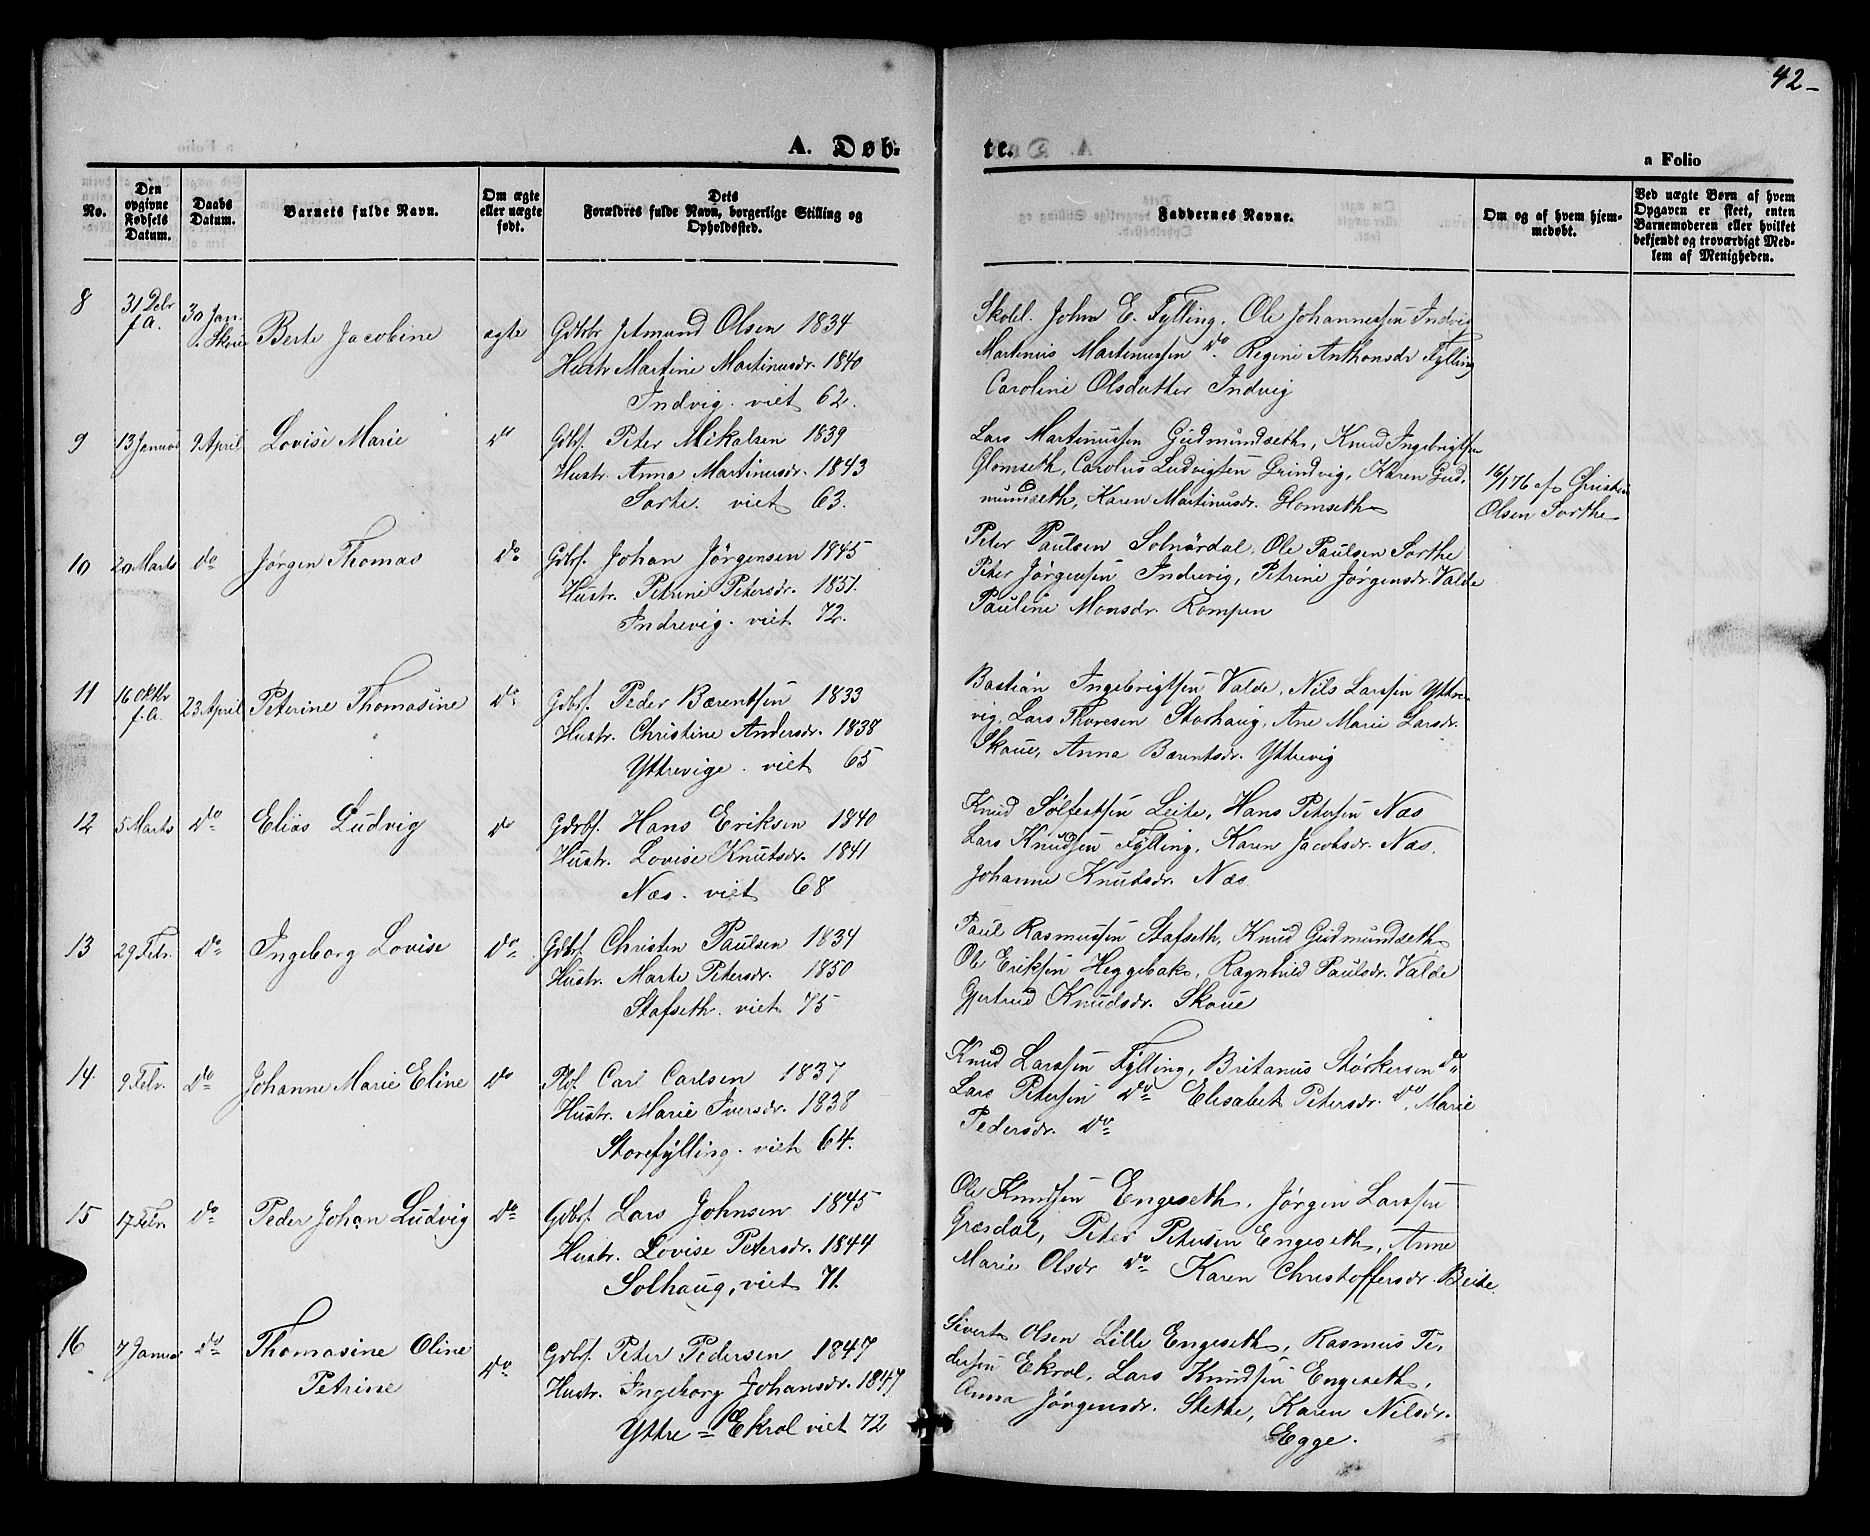 42-
A. Døb-
te.
a Folio
No.
Den opgivne Fødsels Datum.
Daabs Datum.
Barnets fulde Navn.
Om ægte eller uægte født.
Dets Forældres fulde Navn, borgerlige Stilling og Opholdssted.
Faddernes Navne.
Om og af hvem hjemmedøbt.
Ved uægte Børn af hvem Opgaven er skeet, enten Barnemoderen eller hvilket bekjendt og troværdigt Medlem af Menigheden.
8
31 Debr f.A.
30 Jan. Skoue
Berte Jacobine
ægte
Gdbr Jetmund Olsen 1834
Hustr Martine Martinusdr. 1840
Indvig. viet 62.
Skoll. John E. Fylling, Ole Johannessen Indvig
Martinus Martinussen do. Regine Anthonsdr Fylling
Caroline Olsdatter Indvig
9
13 Januar
9 April
Lovise Marie
do
Gdbr. Peter Mikalsen 1839
Hustr. Anna Martinusdr. 1843
Sorte. viet 63.
Lars Martinussen Gudmundseth, Knud Ingebrigtsen
Glomseth, Carolus Ludvigsen Grindvig, Karen Gud-
mundseth, Karen Martinusdr. Glomseth
16/1 76 af Christen
Olsen Sorthe
10
20 Marts
do
Jørgen Thomas
do
Gdbr. Johan Jørgensen 1845
Hustr. Petrine Petersdr. 1851.
Indrevig. viet 72.
Peter Paulsen Solnørdal, Ole Paulsen Sorthe
Peter Jørgensen Indrevig, Petrine Jørgensdr. Valde
Pauline Monsdr. Rompen
11
16 Oktbr f.A.
23 April
Peterine Thomasine
do
Gdbr. Peder Bærentsen 1833
Hustr. Christine Andersdr. 1838
Yttrevige. viet 65
Bastian Ingebrigtsen Valde, Nils Larssen Yttre-
vig, Lars Thoresen Storhaug, Ane Marie Larsdr.
Skoue, Anna Bærentsdr. Yttrevig
12
5 Marts
do
Elias Ludvig
do
Gdrbr. Hans Eriksen 1840
Hustr. Lovise Knutsdr. 1841
Næs. viet 68
Knud Sølfestsen Leite, Hans Petersen Næs
Lars Knudsen Fylling, Karen Jacobsdr. Næs,
Johanne Knudsdr. Næs
13
29 Febr.
do
Ingeborg Lovise
do
Gdbr. Christen Paulsen 1834
Hustr. Marte Petersdr. 1850
Stafseth. viet 75
Paul Rasmussen Stafseth, Knud Gudmundseth
Ole Eriksen Heggebak, Ragnhild Paulsdr. Valde
Gjertrud Knudsdr. Skoue
14.
9 Febr.
do
Johanne Marie Eline
do
Pld. Carl Carlsen 1837
Hustr. Marie Iversdr. 1838
Storefylling. viet 64.
Knud Larssen Fylling, Britanus Størkersen do
Lars Petersen do Elisabet Petersdr. do, Marie
Pedersdr. do
15
17 Febr.
do
Peder Johan Ludvig
do
Gdbr. Lars Johnsen 1845
Hustr. Lovise Petersdr. 1844
Solhaug, viet 71.
Ole Knudsen Engeseth, Jørgen Larssen
Græsdal, Peter Petersen Engeseth, Anne
Marie Olsdr do Karen Christoffersdr. Beite
16
7 Januar
do
Thomasine Oline
Petrine
do
Gdbr. Peter Pedersen 1847
Hustr. Ingeborg Johansdr. 1847
Yttre Ekrol viet 72
Sivert Olsen Lille Engeseth, Rasmus Pe-
dersen Ekrol, Lars Knudsen Engeseth,
Anna Jørgensdr. Stette, Karen Nilsdr.
Egge.